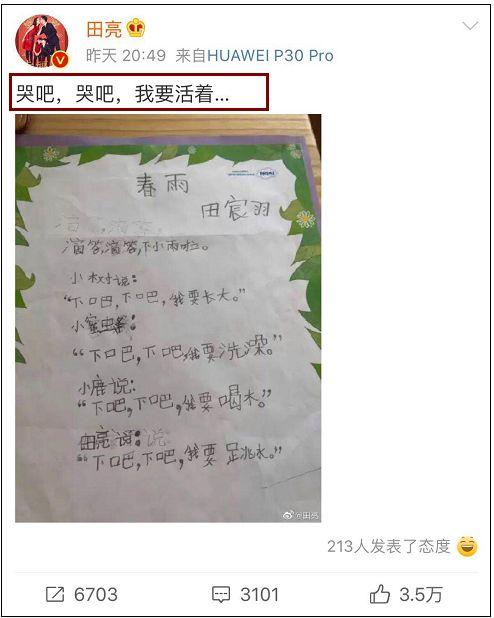 田亮
昨天 20:49 来自HUAWEI P30 Pro
哭吧，哭吧，我要活着...
春雨
田宸羽
滴答,滴答,下小雨啦。
小树说:
“下吧,下吧,我要长大。”
小蜜
“下吧,下吧,我要洗澡。”
小鹿说:
“下吧,下吧,我要喝水。”
田亮说:说
“下吧,下吧,我要跳水。”
@田亮
213人发表了态度
6703 3101 3.5万